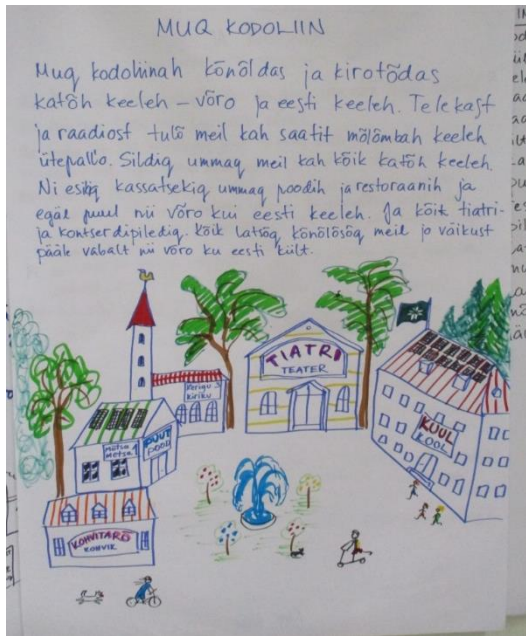 MUQ KODOLIIN
Muq kodoliinah kõnõldas ja kirotõdas
katõh keeleh – võro ja eesti keeleh. Telekast
ja raadiost tulõ meil kah saatit mõlõmbah keeleh
ütepall'o. Sildiq ummaq meil kah kõik katõh keeleh.
Ni esiq kassatsekiq ummaq poodih ja restoraanih ja
egal puul nii võro kui eesti keeleh. Ja kõik tiatri-
ja kontserdipilediq. Kõik latsõq kõnõlõsõq meil jo väikust
pääle vabalt nii võro ku eesti kiilt.
TIATRI
TEATER
Kerigu
Kiriku
Mõtsa
Metsa 1
PUUT
POOD
KUUL
KOOL
KOHVITARÕ
KOHVIK